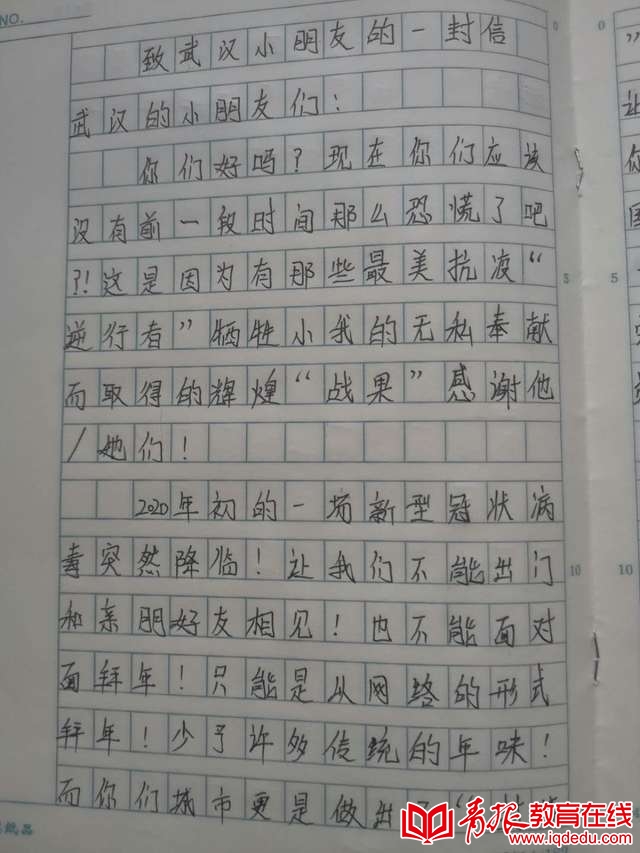 NO.
致武汉小朋友的一封信
武汉的小朋友们!
你们好吗?现在你们应该
没有前一段时间那么恐慌了吧
?!这是因为有那些最美抗疫“
逆行者”牺牲小我的无私奉献
而取得的辉煌“战果”感谢他
/她们!
2020年初的一场新型冠状病
毒突然降临!让我们不能出门
和亲朋好友相见!也不能面对
面拜年!只能是从网络的形式
拜年!少了许多传统的年味!
而你们城市更是做出了“
5
10
0
5
10
”
让
你
纸品
青报教育在线
www.iqdedu.com